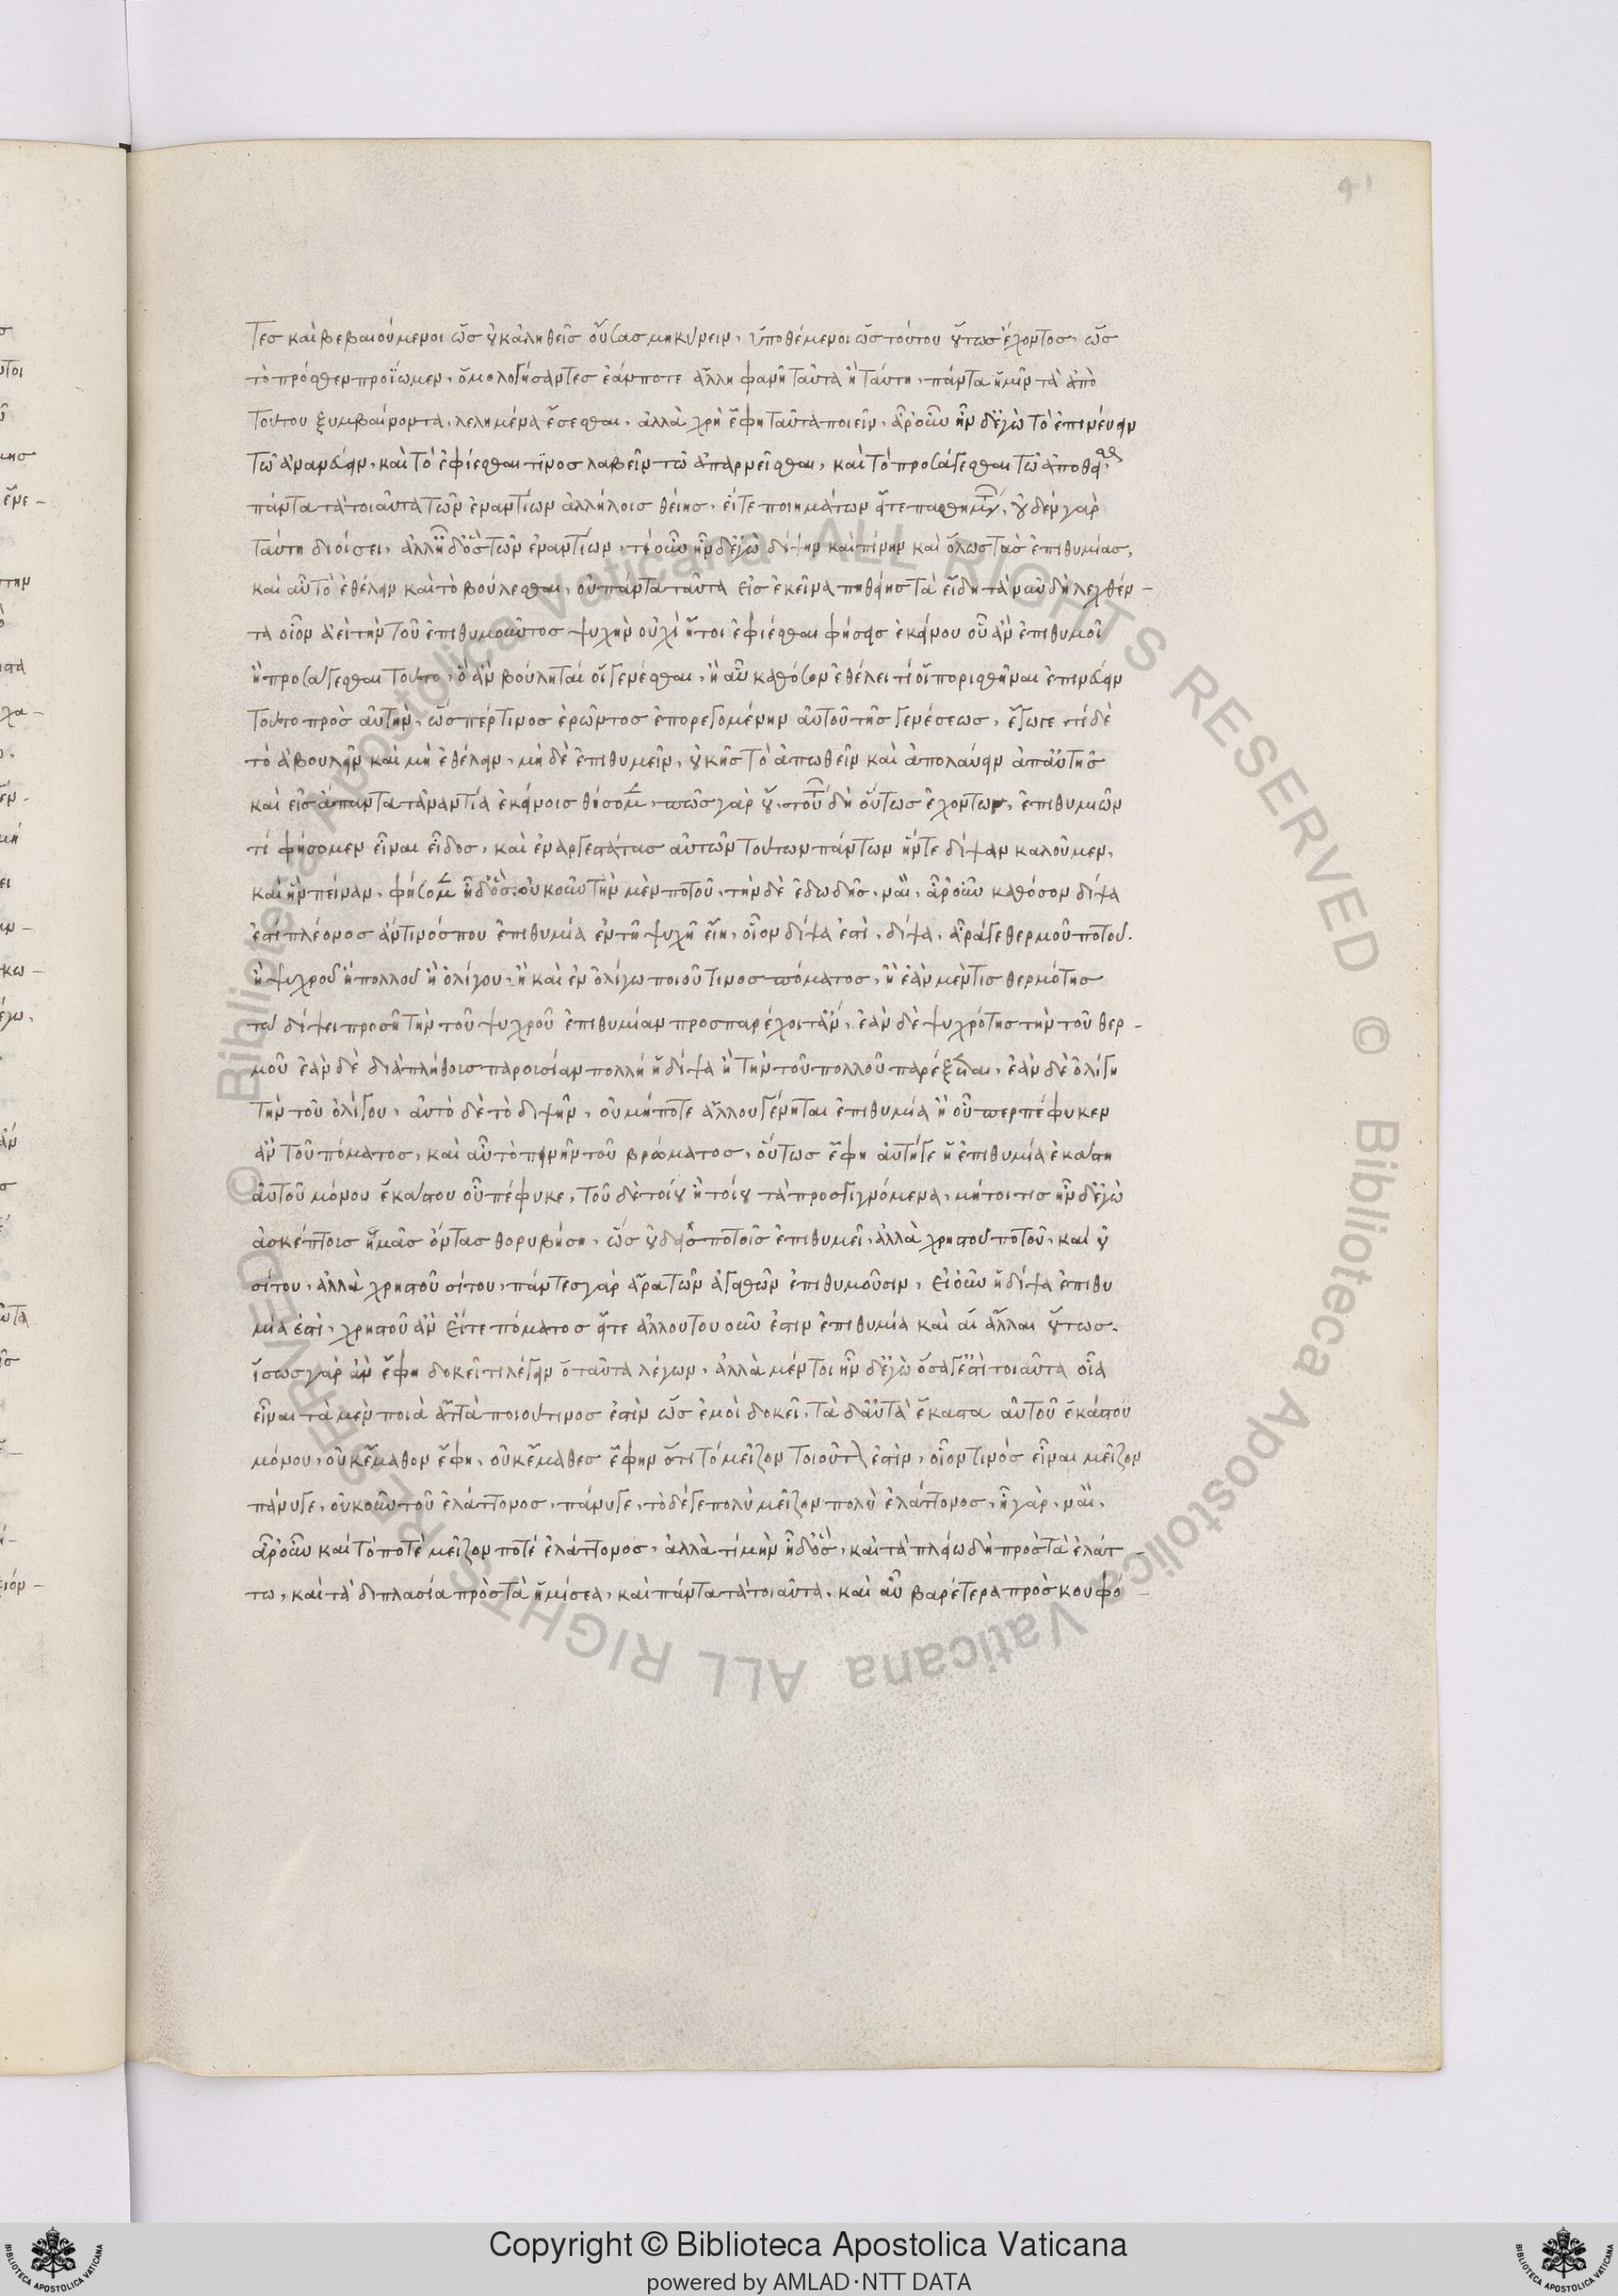 τες καὶ βεβαιούμενοι ὡς οὐκ ἀληθεῖς οὔσας μηκύνειν, ὑποθέμενοι ὡς τούτου οὕτως ἔχοντος, ὡς
τὸ πρόσθεν προΐωμεν, ὁμολογήσαντες ἐάν ποτε ἄλλη φανῆ ταῦτα ἢ ταύτη, πάντα ἡμῖν τὰ ἀπὸ
τούτου ξυμβαίνοντα, λελημένα ἔσεσθαι. ἀλλὰ χρὴ ἔφη ταῦτα ποιεῖν. ἆρ' οὖν ἦν δ' ἐγὼ τὸ ἐπινεύειν
τῶ ἀνανεύειν, καὶ τὸ ἐφίεσθαι τινος λαβεῖν τῶ ἀπαρνεῖσθαι, καὶ τὸ προσάγεσθαι τῶ ἀπωθεῖσθαι
πάντα τὰ τοιαῦτα τῶν ἐναντίων ἀλλήλοις θείης, εἴτε ποιημάτων εἴτε παθημάτων, οὐδὲν γὰρ
ταύτη διοίσει, ἀλλ' ἦ δ' ὃς τῶν ἐναντίων, τί οὖν ἦν δ' ἐγὼ διψῆν καὶ πεινῆν καὶ ὅλως τὰς ἐπιθυμίας,
καὶ αὖ τὸ ἐθέλειν καὶ τὸ βούλεσθαι, οὐ πάντα ταῦτα εἰς ἐκεῖνα πη θείης τὰ εἴδη τὰ νῦν δὴ λεχθέν-
τα οἷον ἀεὶ τὴν τοῦ ἐπιθυμοῦντος ψυχὴν οὐχὶ ἤτοι ἐφιέσθαι φήσεις ἐκείνου οὗ ἂν ἐπιθυμοῖ
ἢ προσάγεσθαι τοῦτο, ὃ ἂν βούληταί οἱ γενέσθαι, ἢ αὖ καθόσον ἐθέλει τί οἱ πορισθῆναι ἐπινεύειν
τοῦτο πρὸς αὐτὴν, ὥσπέρ τινος ἐρῶντος ἐπορεγομένην αὐτοῦ τῆς γενέσεως, ἔγωγε. τί δὲ
τὸ ἀβουλεῖν καὶ μὴ ἐθέλειν, μὴ δὲ ἐπιθυμεῖν, οὐκ εἰς τὸ ἀπωθεῖν καὶ ἀπολαύνειν ἀπ' αὐτῆς
καὶ εἰς ἅπαντα τἀναντία ἐκείνοις θήσομεν, πῶς γὰρ οὔ, τούτων δὴ οὕτως ἐχόντων, ἐπιθυμιῶν
τί φήσομεν εἶναι εἶδος, καὶ ἐναργεστάτας αὐτῶν τούτων πάντων ἥν τε δίψαν καλοῦμεν,
καὶ ἣν πεῖναν, φήσομεν ἦ δ' ὅς. οὐκοῦν τὴν μὲν ποτοῦ, τὴν δὲ ἐδωδῆς, ναί, ἆρ' οὖν καθόσον δίψα
ἐστὶ πλέονος ἄν τινός που ἐπιθυμία ἐν τῆ ψυχῆ εἴη, οἷον δίψα ἐστὶ, δίψα, ἆρά γε θερμοῦ ποτοῦ,
ἢ ψυχροῦ ἢ πολλοῦ ἢ ὀλίγου, ἢ καὶ ἐν ὀλίγω ποιοῦ τινος πόματος, ἢ ἐὰν μέν τις θερμότης
τῶ δίψει προσῆ τὴν τοῦ ψυχροῦ ἐπιθυμίαν προσπαρέχοιτ' ἄν, ἐὰν δὲ ψυχρότης τὴν τοῦ θερ-
μοῦ ἐὰν δὲ διὰ πλήθους παρουσίαν πολλὴ ἡ δίψα ἦ τὴν τοῦ πολλοῦ παρέξεται, ἐὰν δὲ ὀλίγη
τὴν τοῦ ὀλίγου, αὐτὸ δὲ τὸ διψῆν, οὐ μή ποτε ἄλλου γένηται ἐπιθυμία ἢ οὗπερ πέφυκεν
ἂν τοῦ πόματος, καὶ αὖ τὸ πεινῆν τοῦ βρώματος, οὕτως ἔφη αὐτή γε ἡ ἐπιθυμία ἑκάστη
αὐτοῦ μόνου ἑκάστου οὗ πέφυκε, τοῦ δὲ τοίου ἢ τοίου τὰ προσγιγνόμενα, μήτοι τις ἦν δ' ἐγὼ
ἀσκέπτους ἡμᾶς ὄντας θορυβήση, ὡς οὐδεὶς ποτοῖς ἐπιθυμεῖ, ἀλλὰ χρηστοῦ ποτοῦ, καὶ οὐ
σίτου, ἀλλὰ χρηστοῦ σίτου, πάντες γὰρ ἄρα τῶν ἀγαθῶν ἐπιθυμοῦσιν, εἰ οὖν ἡ δίψα ἐπιθυ
μία ἐστὶ, χρηστοῦ ἂν εἴτε πόματος εἴτε ἄλλου του οὖν ἐστιν ἐπιθυμία καὶ αἱ ἄλλαι οὕτως.
ἴσως γὰρ ἂν ἔφη δοκεῖ τι λέγειν ὁ ταῦτα λέγων, ἀλλὰ μέντοι ἦν δ' ἐγὼ ὅσα γ' ἐστὶ τοιαῦτα οἷα
εἶναι τὰ μὲν ποιὰ ἄττα ποιοῦ τινος ἐστὶν ὡς ἐμοὶ δοκεῖ, τὰ δ' αὐτὰ ἕκαστα αὐτοῦ ἑκάστου
μόνου, οὐκ ἔμαθον ἔφη, οὐκ ἔμαθες ἔφην ὅτι τὸ μεῖζον τοιοῦτον ἐστὶν, οἷον τινὸς εἶναι μεῖζον
πάνυ γε, οὐκοῦν τοῦ ἐλάττονος, πάνυ γε, τὸ δέ γε πολὺ μεῖζον πολὺ ἐλάττονος, ἦ γὰρ, ναί,
ἆρ' οὖν καὶ τό ποτὲ μεῖζον ποτὲ ἐλάττονος, ἀλλὰ τί μὴν ἦ δ' ὅς, καὶ τὰ πλείω δὴ πρὸς τὰ ἐλάτ-
τω, καὶ τὰ διπλασία πρὸς τὰ ἡμίσεα, καὶ πάντα τὰ τοιαῦτα, καὶ αὖ βαρέτερα πρὸς κουφό-
Copyright © Biblioteca Apostolica Vaticana
powered by AMLAD·NTT DATA